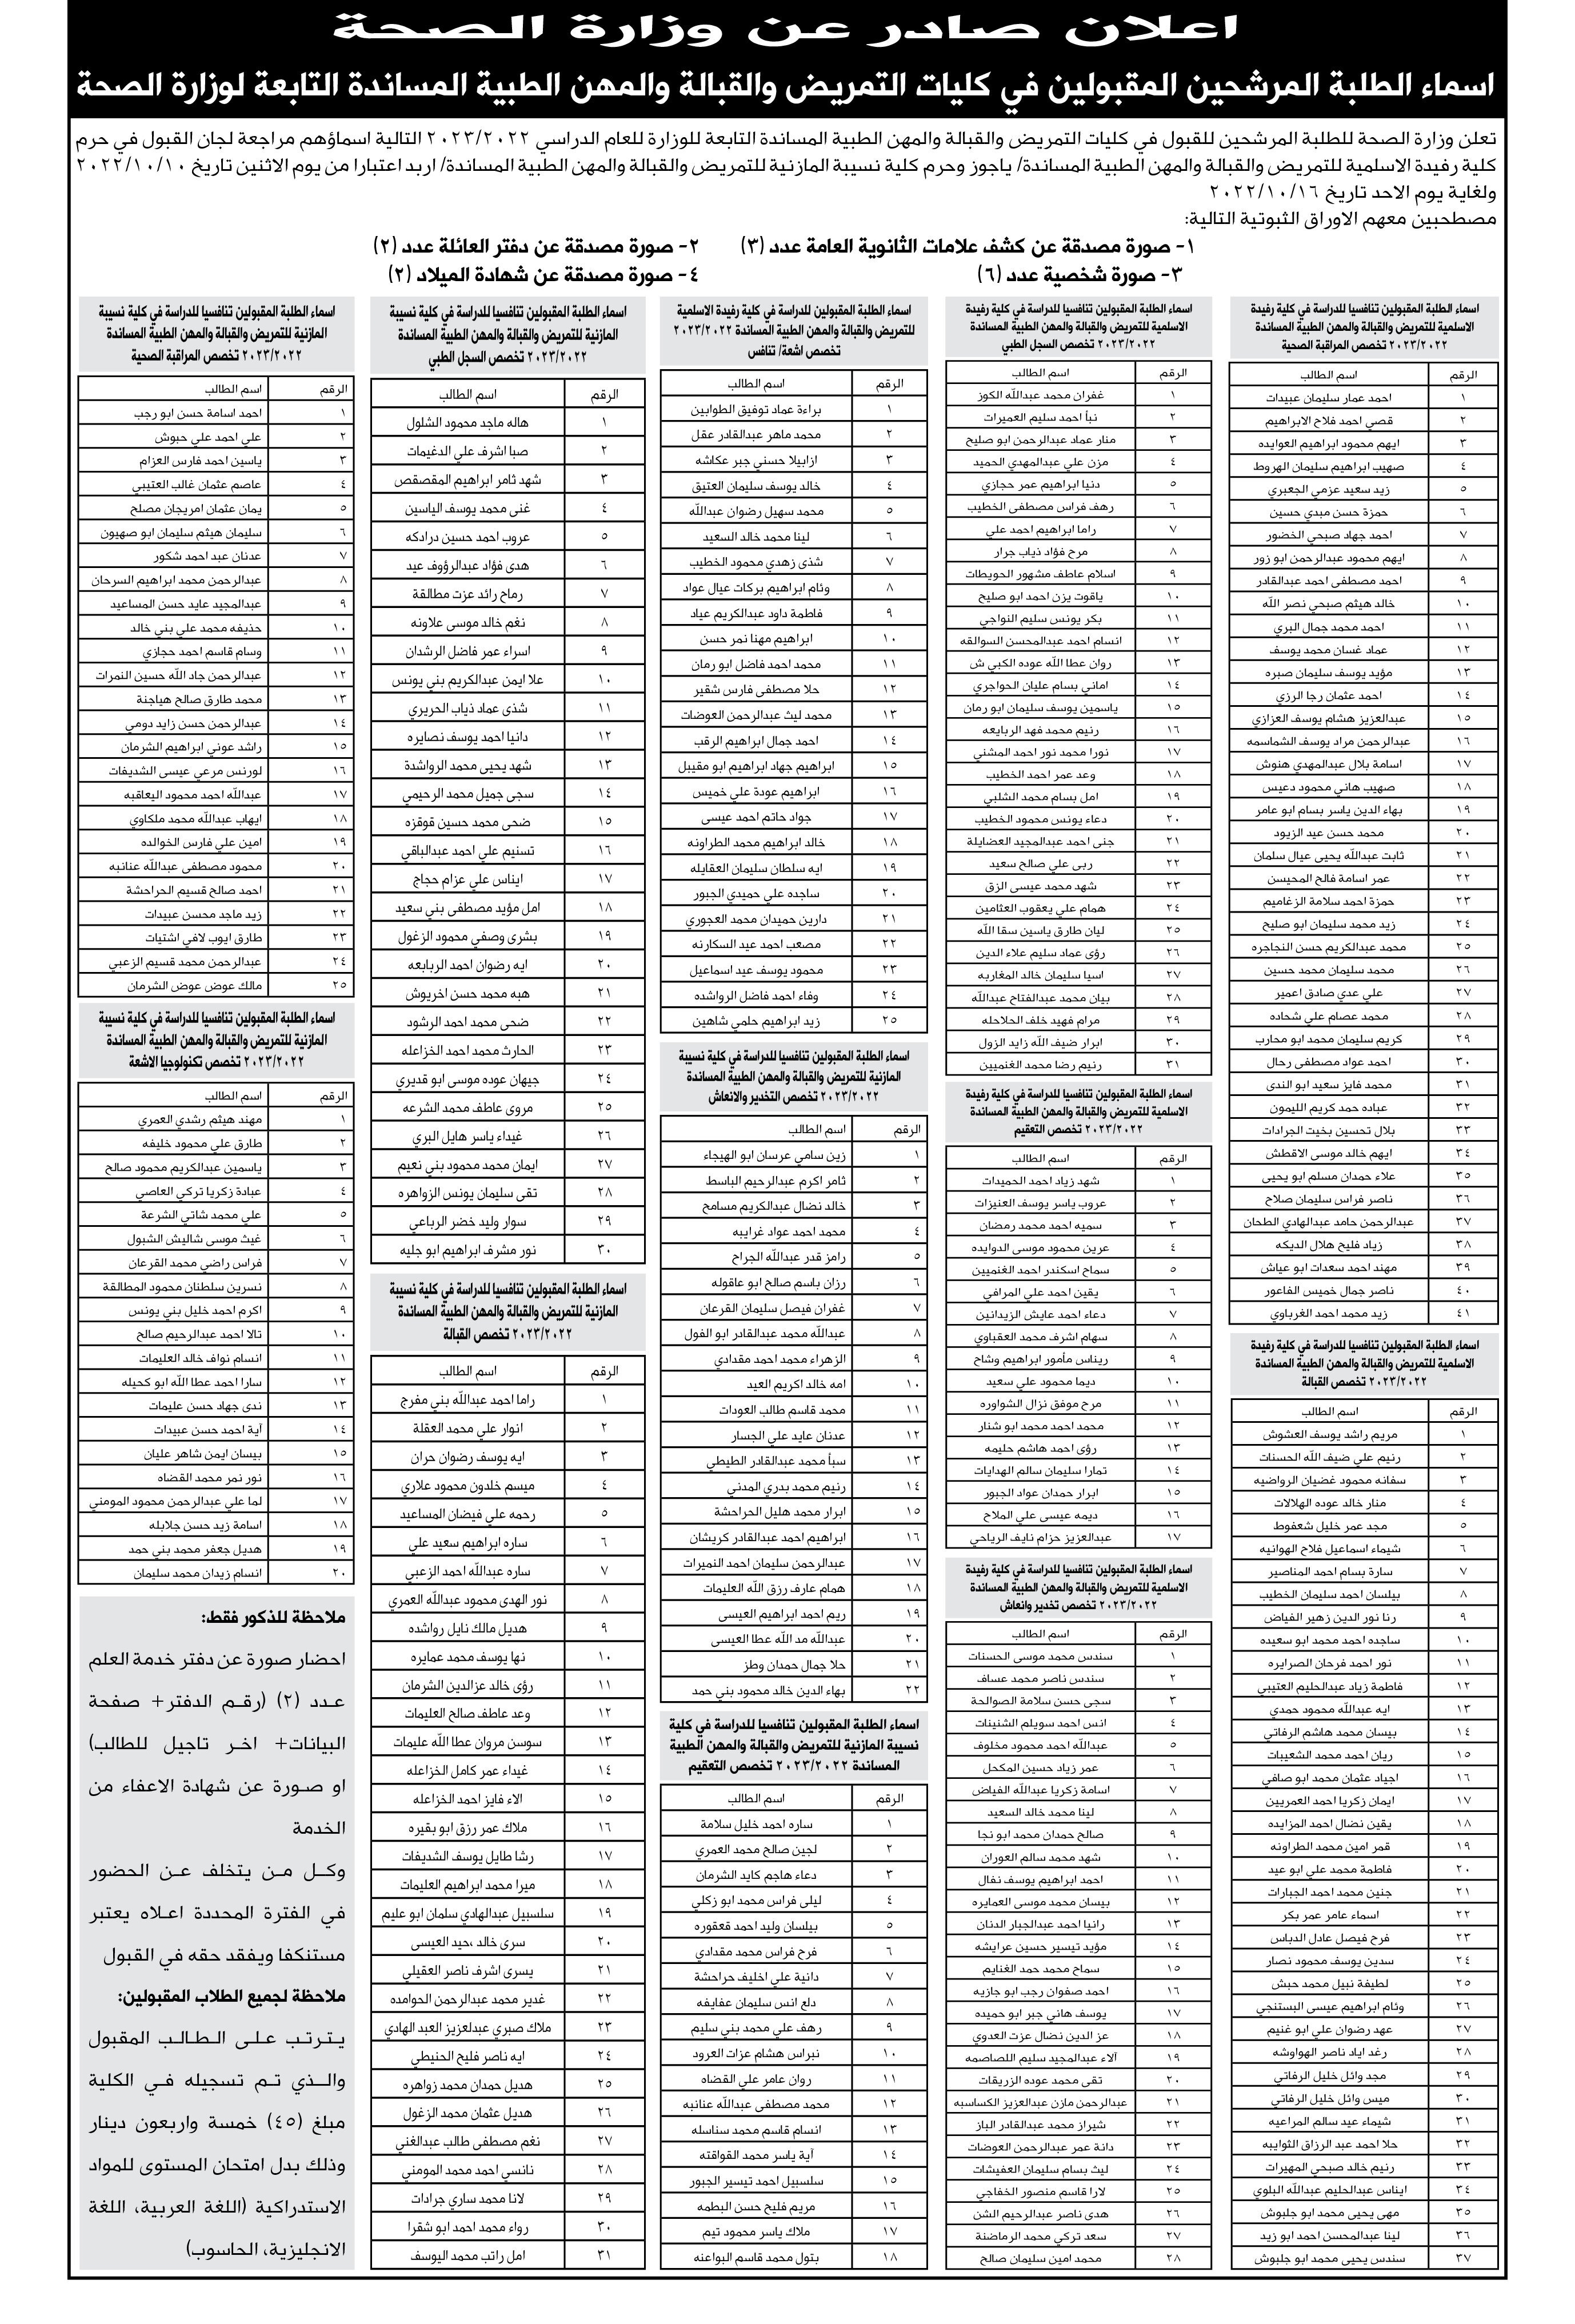 اعلان صادر عن وزارة الصحة
اسماء الطلبة المرشحين المقبولين في كليات التمريض والقبالة والمهن الطبية المساندة التابعة لوزارة الصحة
تعلن وزارة الصحة للطلبة المرشحين للقبول في كليات التمريض والقبالة والمهن الطبية المساندة التابعة للوزارة للعام الدراسي ٢٠٢٣/٢٠٢٢ التالية اسماؤهم مراجعة لجان القبول في حرم
كلية رفيدة الاسلمية للتمريض والقبالة والمهن الطبية المساندة/ ياجوز وحرم كلية نسيبة المازنية للتمريض والقبالة والمهن الطبية المساندة/ اربد اعتبارا من يوم الاثنين تاريخ ٢٠٢٢/١٠/١٠
ولغاية يوم الاحد تاريخ ٢٠٢٢/١٠/١٦
مصطحبين معهم الاوراق الثبوتية التالية:
١- صورة مصدقة عن كشف علامات الثانوية العامة عدد (٣) ٢- صورة مصدقة عن دفتر العائلة عدد (٢)
٣- صورة شخصية عدد (٦) ٤- صورة مصدقة عن شهادة الميلاد (٢)
اسماء الطلبة المقبولين تنافسيا للدراسة في كلية رفيدة
الاسلمية للتمريض والقبالة والمهن الطبية المساندة
٢٠٢٣/٢٠٢٢ تخصص المراقبة الصحية
الرقم اسم الطالب
١ احمد عمار سليمان عبيدات
٢ قصي احمد فلاح الابراهيم
٣ ايهم محمود ابراهيم العوايده
٤ صهيب ابراهيم سليمان الهروط
٥ زيد سعيد عزمي الجعبري
٦ حمزة حسن مبدي حسين
٧ احمد جهاد صبحي الخضور
٨ ايهم محمود عبدالرحمن ابو زور
٩ احمد مصطفى احمد عبدالقادر
١٠ خالد هيثم صبحي نصر الله
١١ احمد محمد جمال البري
١٢ عماد غسان محمد يوسف
١٣ مؤيد يوسف سليمان صبره
١٤ احمد عثمان رجا الرزي
١٥ عبدالعزيز هشام يوسف العزازي
١٦ عبدالرحمن مراد يوسف الشماسمه
١٧ اسامة بلال عبدالمهدي هنوش
١٨ صهيب هاني محمود دعيس
١٩ بهاء الدين ياسر بسام ابو عامر
٢٠ محمد حسن عيد الزيود
٢١ ثابت عبدالله يحيى عيال سلمان
٢٢ عمر اسامة فالح المحيسن
٢٣ حمزة احمد سلامة الزغاميم
٢٤ زيد محمد سليمان ابو صليح
٢٥ محمد عبدالكريم حسن النجاجره
٢٦ محمد سليمان محمد حسين
٢٧ علي عدي صادق اعمير
٢٨ محمد عصام علي شحاده
٢٩ كريم سليمان محمد ابو محارب
٣٠ احمد عواد مصطفى رحال
٣١ محمد فايز سعيد ابو الندى
٣٢ عباده حمد كريم الليمون
٣٣ بلال تحسين بخيت الجرادات
٣٤ ايهم خالد موسى الاقطش
٣٥ علاء حمدان مسلم ابو يحيى
٣٦ ناصر فراس سليمان صلاح
٣٧ عبدالرحمن حامد عبدالهادي الطحان
٣٨ زياد فليح هلال الديكه
٣٩ مهند احمد سعدات ابو عياش
٤٠ ناصر جمال خميس الفاعور
٤١ زيد محمد احمد الغرباوي
اسماء الطلبة المقبولين تنافسيا للدراسة في كلية رفيدة
الاسلمية للتمريض والقبالة والمهن الطبية المساندة
٢٠٢٣/٢٠٢٢ تخصص القبالة
الرقم اسم الطالب
١ مريم راشد يوسف العشوش
٢ رنيم علي ضيف الله الحسنات
٣ سفانه محمود غضيان الرواضيه
٤ منار خالد عوده الهلالات
٥ مجد عمر خليل شعفوط
٦ شيماء اسماعيل فلاح الهوانيه
٧ سارة بسام احمد المناصير
٨ بيلسان احمد سليمان الخطيب
٩ رنا نور الدين زهير الفياض
١٠ ساجده احمد محمد ابو سعيده
١١ نور احمد فرحان الصرايره
١٢ فاطمة زياد عبدالحليم العتيبي
١٣ ايه عبدالله محمود حمدي
١٤ بيسان محمد هاشم الرفاتي
١٥ ريان احمد محمد الشعيبات
١٦ اجياد عثمان محمد ابو صافي
١٧ ايمان زكريا احمد العمريين
١٨ يقين نضال احمد المزايده
١٩ قمر امين محمد الطراونه
٢٠ فاطمة محمد علي ابو عيد
٢١ جنين محمد احمد الجبارات
٢٢ اسماء عامر عمر بكر
٢٣ فرح فيصل عادل الدباس
٢٤ سدين يوسف محمود نصار
٢٥ لطيفة نبيل محمد حبش
٢٦ وئام ابراهيم عيسى البستنجي
٢٧ عهد رضوان علي ابو غنيم
٢٨ رغد اياد ناصر الهواوشه
٢٩ مجد وائل خليل الرفاتي
٣٠ ميس وائل خليل الرفاتي
٣١ شيماء عيد سالم المراعيه
٣٢ حلا احمد عبد الرزاق الثوايبه
٣٣ رنيم خالد صبحي المهيرات
٣٤ ايناس عبدالحليم عبدالله البلوي
٣٥ مهى يحيى محمد ابو جلبوش
٣٦ لينا عبدالمحسن احمد ابو زيد
٣٧ سندس يحيى محمد ابو جلبوش
اسماء الطلبة المقبولين تنافسيا للدراسة في كلية رفيدة
الاسلمية للتمريض والقبالة والمهن الطبية المساندة
٢٠٢٣/٢٠٢٢ تخصص السجل الطبي
الرقم اسم الطالب
١ غفران محمد عبدالله الكوز
٢ نبأ احمد سليم العميرات
٣ منار عماد عبدالرحمن ابو صليح
٤ مزن علي عبدالمهدي الحميد
٥ دنيا ابراهيم عمر حجازي
٦ رهف فراس مصطفى الخطيب
٧ راما ابراهيم احمد علي
٨ مرح فؤاد ذياب جرار
٩ اسلام عاطف مشهور الحويطات
١٠ ياقوت يزن احمد ابو صليح
١١ بكر يونس سليم النواجي
١٢ انسام احمد عبدالمحسن السوالقه
١٣ روان عطا الله عوده الكبي ش
١٤ اماني بسام عليان الحواجري
١٥ ياسمين يوسف سليمان ابو رمان
١٦ رنيم محمد فهد الربايعه
١٧ نورا محمد نور احمد المشني
١٨ وعد عمر احمد الخطيب
١٩ امل بسام محمد الشلبي
٢٠ دعاء يونس محمود الخطيب
٢١ جنى احمد عبدالمجيد العضايلة
٢٢ ربى علي صالح سعيد
٢٣ شهد محمد عيسى الزق
٢٤ همام علي يعقوب العثامين
٢٥ ليان طارق ياسين سقا الله
٢٦ رؤى عماد سليم علاء الدين
٢٧ اسيا سليمان خالد المغاربه
٢٨ بيان محمد عبدالفتاح عبدالله
٢٩ مرام فهيد خلف الحلاحله
٣٠ ابرار ضيف الله زايد الزول
٣١ رنيم رضا محمد الغنميين
اسماء الطلبة المقبولين تنافسيا للدراسة في كلية رفيدة
الاسلمية للتمريض والقبالة والمهن الطبية المساندة
٢٠٢٣/٢٠٢٢ تخصص التعقيم
الرقم اسم الطالب
١ شهد زياد احمد الحميدات
٢ عروب ياسر يوسف العنيزات
٣ سميه احمد محمد رمضان
٤ عرين محمود موسى الدوايده
٥ سماح اسكندر احمد الغنميين
٦ يقين احمد علي المرافي
٧ دعاء احمد عايش الزيدانين
٨ سهام اشرف محمد العقباوي
٩ ريناس مأمور ابراهيم وشاح
١٠ ديما محمود علي سعيد
١١ مرح موفق نزال الشواوره
١٢ محمد احمد محمد ابو شنار
١٣ رؤى احمد هاشم حليمه
١٤ تمارا سليمان سالم الهدايات
١٥ ابرار حمدان عواد الجبور
١٦ ديمه عيسى علي الملاح
١٧ عبدالعزيز حزام نايف الرياحي
اسماء الطلبة المقبولين تنافسيا للدراسة في كلية رفيدة
الاسلمية للتمريض والقبالة والمهن الطبية المساندة
٢٠٢٣/٢٠٢٢ تخصص تخدير وانعاش
الرقم اسم الطالب
١ سندس محمد موسى الحسنات
٢ سندس ناصر محمد عساف
٣ سجى حسن سلامة الصوالحة
٤ انس احمد سويلم الشنينات
٥ عبدالله احمد محمود مخلوف
٦ عمر زياد حسين المكحل
٧ اسامة زكريا عبدالله الفياض
٨ لينا محمد خالد السعيد
٩ صالح حمدان محمد ابو نجا
١٠ شهد محمد سالم العوران
١١ احمد ابراهيم يوسف نفال
١٢ بيسان محمد موسى العمايره
١٣ رانيا احمد عبدالجبار الدنان
١٤ مؤيد تيسير حسين عرايشه
١٥ سماح محمد حمد الغنايم
١٦ احمد صفوان رجب ابو جازيه
١٧ يوسف هاني جبر ابو حميده
١٨ عز الدين نضال عزت العدوي
١٩ آلاء عبدالمجيد سليم اللصاصمه
٢٠ تقى محمد عوده الزريقات
٢١ عبدالرحمن مازن عبدالعزيز الكساسبه
٢٢ شيراز محمد عبدالقادر الباز
٢٣ دانة عمر عبدالرحمن العوضات
٢٤ ليث بسام سليمان العفيشات
٢٥ لارا قاسم منصور الخفاجي
٢٦ هدى ناصر عبدالرحيم الشن
٢٧ سعد تركي محمد الرماضنة
٢٨ محمد امين سليمان صالح
اسماء الطلبة المقبولين تنافسيا للدراسة في كلية رفيدة الاسلمية
للتمريض والقبالة والمهن الطبية المساندة ٢٠٢٣/٢٠٢٢
تخصص اشعة/ تنافس
الرقم اسم الطالب
١ براءة عماد توفيق الطوابين
٢ محمد ماهر عبدالقادر عقل
٣ ازابيلا حسني جبر عكاشه
٤ خالد يوسف سليمان العتيق
٥ محمد سهيل رضوان عبدالله
٦ لينا محمد خالد السعيد
٧ شذى زهدي محمود الخطيب
٨ وئام ابراهيم بركات عيال عواد
٩ فاطمة داود عبدالكريم عياد
١٠ ابراهيم مهنا نمر حسن
١١ محمد احمد فاضل ابو رمان
١٢ حلا مصطفى فارس شقير
١٣ محمد ليث عبدالرحمن العوضات
١٤ احمد جمال ابراهيم الرقب
١٥ ابراهيم جهاد ابراهيم ابو مقيبل
١٦ ابراهيم عودة علي خميس
١٧ جواد حاتم احمد عيسى
١٨ خالد ابراهيم محمد الطراونه
١٩ ايه سلطان سليمان العقايله
٢٠ ساجده علي حميدي الجبور
٢١ دارين حميدان محمد العجوري
٢٢ مصعب احمد عيد السكارنه
٢٣ محمود يوسف عيد اسماعيل
٢٤ وفاء احمد فاضل الرواشده
٢٥ زيد ابراهيم حلمي شاهين
اسماء الطلبة المقبولين تنافسيا للدراسة في كلية نسيبة
المازنية للتمريض والقبالة والمهن الطبية المساندة
٢٠٢٣/٢٠٢٢ تخصص التخدير والانعاش
الرقم اسم الطالب
١ زين سامي عرسان ابو الهيجاء
٢ ثامر اكرم عبدالرحيم الباسط
٣ خالد نضال عبدالكريم مسامح
٤ محمد احمد عواد غرايبه
٥ رامز قدر عبدالله الجراح
٦ رزان باسم صالح ابو عاقوله
٧ غفران فيصل سليمان القرعان
٨ عبدالله محمد عبدالقادر ابو الفول
٩ الزهراء محمد احمد مقدادي
١٠ امه خالد اكريم العيد
١١ محمد قاسم طالب العودات
١٢ عدنان عايد علي الجسار
١٣ سبأ محمد عبدالقادر الطيطي
١٤ رنيم محمد بدري المدني
١٥ ابرار محمد هليل الحراحشة
١٦ ابراهيم احمد عبدالقادر كريشان
١٧ عبدالرحمن سليمان احمد النميرات
١٨ همام عارف رزق الله العليمات
١٩ ريم احمد ابراهيم العيسى
٢٠ عبدالله مد الله عطا العيسى
٢١ حلا جمال حمدان وطز
٢٢ بهاء الدين خالد محمود بني حمد
اسماء الطلبة المقبولين تنافسيا للدراسة في كلية
نسيبة المازنية للتمريض والقبالة والمهن الطبية
المساندة ٢٠٢٣/٢٠٢٢ تخصص التعقيم
الرقم اسم الطالب
١ ساره احمد خليل سلامة
٢ لجين صالح محمد العمري
٣ دعاء هاجم كايد الشرمان
٤ ليلى فراس محمد ابو زكلي
٥ بيلسان وليد احمد قعقوره
٦ فرح فراس محمد مقدادي
٧ دانية علي اخليف حراحشة
٨ دلع انس سليمان عفايفه
٩ رهف علي محمد بني سليم
١٠ نبراس هشام عزات العرود
١١ روان عامر علي القضاه
١٢ محمد مصطفى عبدالله عنانبه
١٣ انسام قاسم محمد سناسله
١٤ آية ياسر محمد القواقنه
١٥ سلسبيل احمد تيسير الجبور
١٦ مريم فليح حسن البطمه
١٧ ملاك ياسر محمود تيم
١٨ بتول محمد قاسم البواعنه
اسماء الطلبة المقبولين تنافسيا للدراسة في كلية نسيبة
المازنية للتمريض والقبالة والمهن الطبية المساندة
٢٠٢٣/٢٠٢٢ تخصص السجل الطبي
الرقم اسم الطالب
١ هاله ماجد محمود الشلول
٢ صبا اشرف علي الدغيمات
٣ شهد ثامر ابراهيم المقصقص
٤ غنى محمد يوسف الياسين
٥ عروب احمد حسين درادكه
٦ هدى فؤاد عبدالرؤوف عيد
٧ رماح رائد عزت مطالقة
٨ نغم خالد موسى علاونه
٩ اسراء عمر فاضل الرشدان
١٠ علا ايمن عبدالكريم بني يونس
١١ شذى عماد ذياب الحريري
١٢ دانيا احمد يوسف نصايره
١٣ شهد يحيى محمد الرواشدة
١٤ سجى جميل محمد الرحيمي
١٥ ضحى محمد حسين قوقزه
١٦ تسنيم علي احمد عبدالباقي
١٧ ايناس علي عزام حجاج
١٨ امل مؤيد مصطفى بني سعيد
١٩ بشرى وصفي محمود الزغول
٢٠ ايه رضوان احمد الربابعه
٢١ هبه محمد حسن اخريوش
٢٢ ضحى محمد احمد الرشود
٢٣ الحارث محمد احمد الخزاعله
٢٤ جيهان عوده موسى ابو قديري
٢٥ مروى عاطف محمد الشرعه
٢٦ غيداء ياسر هايل البري
٢٧ ايمان محمد محمود بني نعيم
٢٨ تقى سليمان يونس الزواهره
٢٩ سوار وليد خضر الرباعي
٣٠ نور مشرف ابراهيم ابو جليه
اسماء الطلبة المقبولين تنافسيا للدراسة في كلية نسيبة
المازنية للتمريض والقبالة والمهن الطبية المساندة
٢٠٢٣/٢٠٢٢ تخصص القبالة
الرقم اسم الطالب
١ راما احمد عبدالله بني مفرج
٢ انوار علي محمد العقلة
٣ ايه يوسف رضوان حران
٤ ميسم خلدون محمود علاري
٥ رحمه علي فيضان المساعيد
٦ ساره ابراهيم سعيد علي
٧ ساره عبدالله احمد الزعبي
٨ نور الهدى محمود عبدالله العمري
٩ هديل مالك نايل رواشده
١٠ نها يوسف محمد عمايره
١١ رؤى خالد عزالدين الشرمان
١٢ وعد عاطف صالح العليمات
١٣ سوسن مروان عطا الله عليمات
١٤ غيداء عمر كامل الخزاعله
١٥ الاء فايز احمد الخزاعله
١٦ ملاك عمر رزق ابو بقيره
١٧ رشا طايل يوسف الشديفات
١٨ ميرا محمد ابراهيم العليمات
١٩ سلسبيل عبدالهادي سلمان ابو عليم
٢٠ سرى خالد ،حيد العيسى
٢١ يسرى اشرف ناصر العقيلي
٢٢ غدير محمد عبدالرحمن الحوامده
٢٣ ملاك صبري عبدلعزيز العبد الهادي
٢٤ ايه ناصر فليح الحنيطي
٢٥ هديل حمدان محمد زواهره
٢٦ هديل عثمان محمد الزغول
٢٧ نغم مصطفى طالب عبدالغني
٢٨ نانسي احمد محمد المومني
٢٩ لانا محمد ساري جرادات
٣٠ رواء محمد احمد ابو شقرا
٣١ امل راتب محمد اليوسف
اسماء الطلبة المقبولين تنافسيا للدراسة في كلية نسيبة
المازنية للتمريض والقبالة والمهن الطبية المساندة
٢٠٢٣/٢٠٢٢ تخصص المراقبة الصحية
الرقم اسم الطالب
١ احمد اسامة حسن ابو رجب
٢ علي احمد علي حبوش
٣ ياسين احمد فارس العزام
٤ عاصم عثمان غالب العتيبي
٥ يمان عثمان امريجان مصلح
٦ سليمان هيثم سليمان ابو صهيون
٧ عدنان عبد احمد شكور
٨ عبدالرحمن محمد ابراهيم السرحان
٩ عبدالمجيد عايد حسن المساعيد
١٠ حذيفه محمد علي بني خالد
١١ وسام قاسم احمد حجازي
١٢ عبدالرحمن جاد الله حسين النمرات
١٣ محمد طارق صالح هياجنة
١٤ عبدالرحمن حسن زايد دومي
١٥ راشد عوني ابراهيم الشرمان
١٦ لورنس مرعي عيسى الشديفات
١٧ عبدالله احمد محمود اليعاقبه
١٨ ايهاب عبدالله محمد ملكاوي
١٩ امين علي فارس الخوالده
٢٠ محمود مصطفى عبدالله عنانبه
٢١ احمد صالح قسيم الحراحشة
٢٢ زيد ماجد محسن عبيدات
٢٣ طارق ايوب لافي اشتيات
٢٤ عبدالرحمن محمد قسيم الزعبي
٢٥ مالك عوض عوض الشرمان
اسماء الطلبة المقبولين تنافسيا للدراسة في كلية نسيبة
المازنية للتمريض والقبالة والمهن الطبية المساندة
٢٠٢٣/٢٠٢٢ تخصص تكنولوجيا الاشعة
الرقم اسم الطالب
١ مهند هيثم رشدي العمري
٢ طارق علي محمود خليفه
٣ ياسمين عبدالكريم محمود صالح
٤ عبادة زكريا تركي العاصي
٥ علي محمد شاتي الشرعة
٦ غيث موسى شاليش الشبول
٧ فراس راضي محمد القرعان
٨ نسرين سلطنان محمود المطالقة
٩ اكرم احمد خليل بني يونس
١٠ تالا احمد عبدالرحيم صالح
١١ انسام نواف خالد العليمات
١٢ سارا احمد عطا الله ابو كحيله
١٣ ندى جهاد حسن عليمات
١٤ آية احمد حسن عبيدات
١٥ بيسان ايمن شاهر عليان
١٦ نور نمر محمد القضاه
١٧ لما علي عبدالرحمن محمود المومني
١٨ اسامة زيد حسن جلابله
١٩ هديل جعفر محمد بني حمد
٢٠ انسام زيدان محمد سليمان
ملاحظة للذكور فقط:
احضار صورة عن دفتر خدمة العلم
عدد (٢) (رقم الدفتر+ صفحة
البيانات+ اخر تاجيل للطالب)
او صورة عن شهادة الاعفاء من
الخدمة
وكل من يتخلف عن الحضور
في الفترة المحددة اعلاه يعتبر
مستنكفا ويفقد حقه في القبول
ملاحظة لجميع الطلاب المقبولين:
يترتب على الطالب المقبول
والذي تم تسجيله في الكلية
مبلغ (٤٥) خمسة واربعون دينار
وذلك بدل امتحان المستوى للمواد
الاستدراكية (اللغة العربية، اللغة
الانجليزية، الحاسوب)